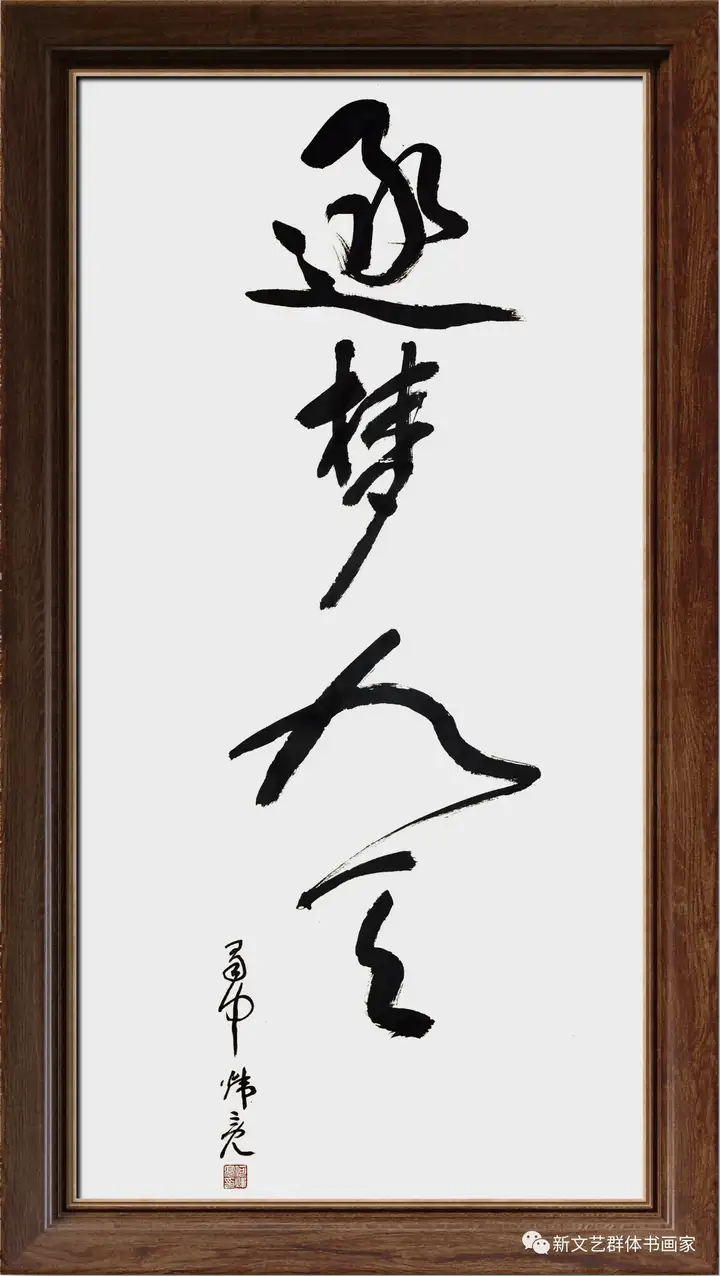 逐梦九天
蜀中 炜亮
新文艺群体书画家